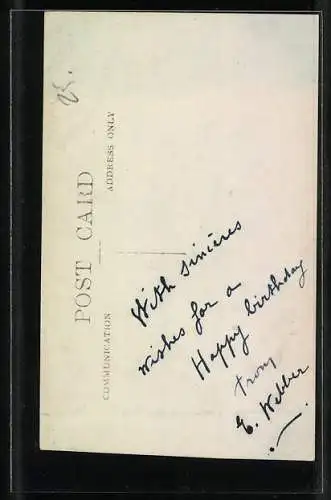 POST CARD
COMMUNICATION
ADDRESS ONLY
With sinceres
wishes for a
Happy birthday
from
E. Webber